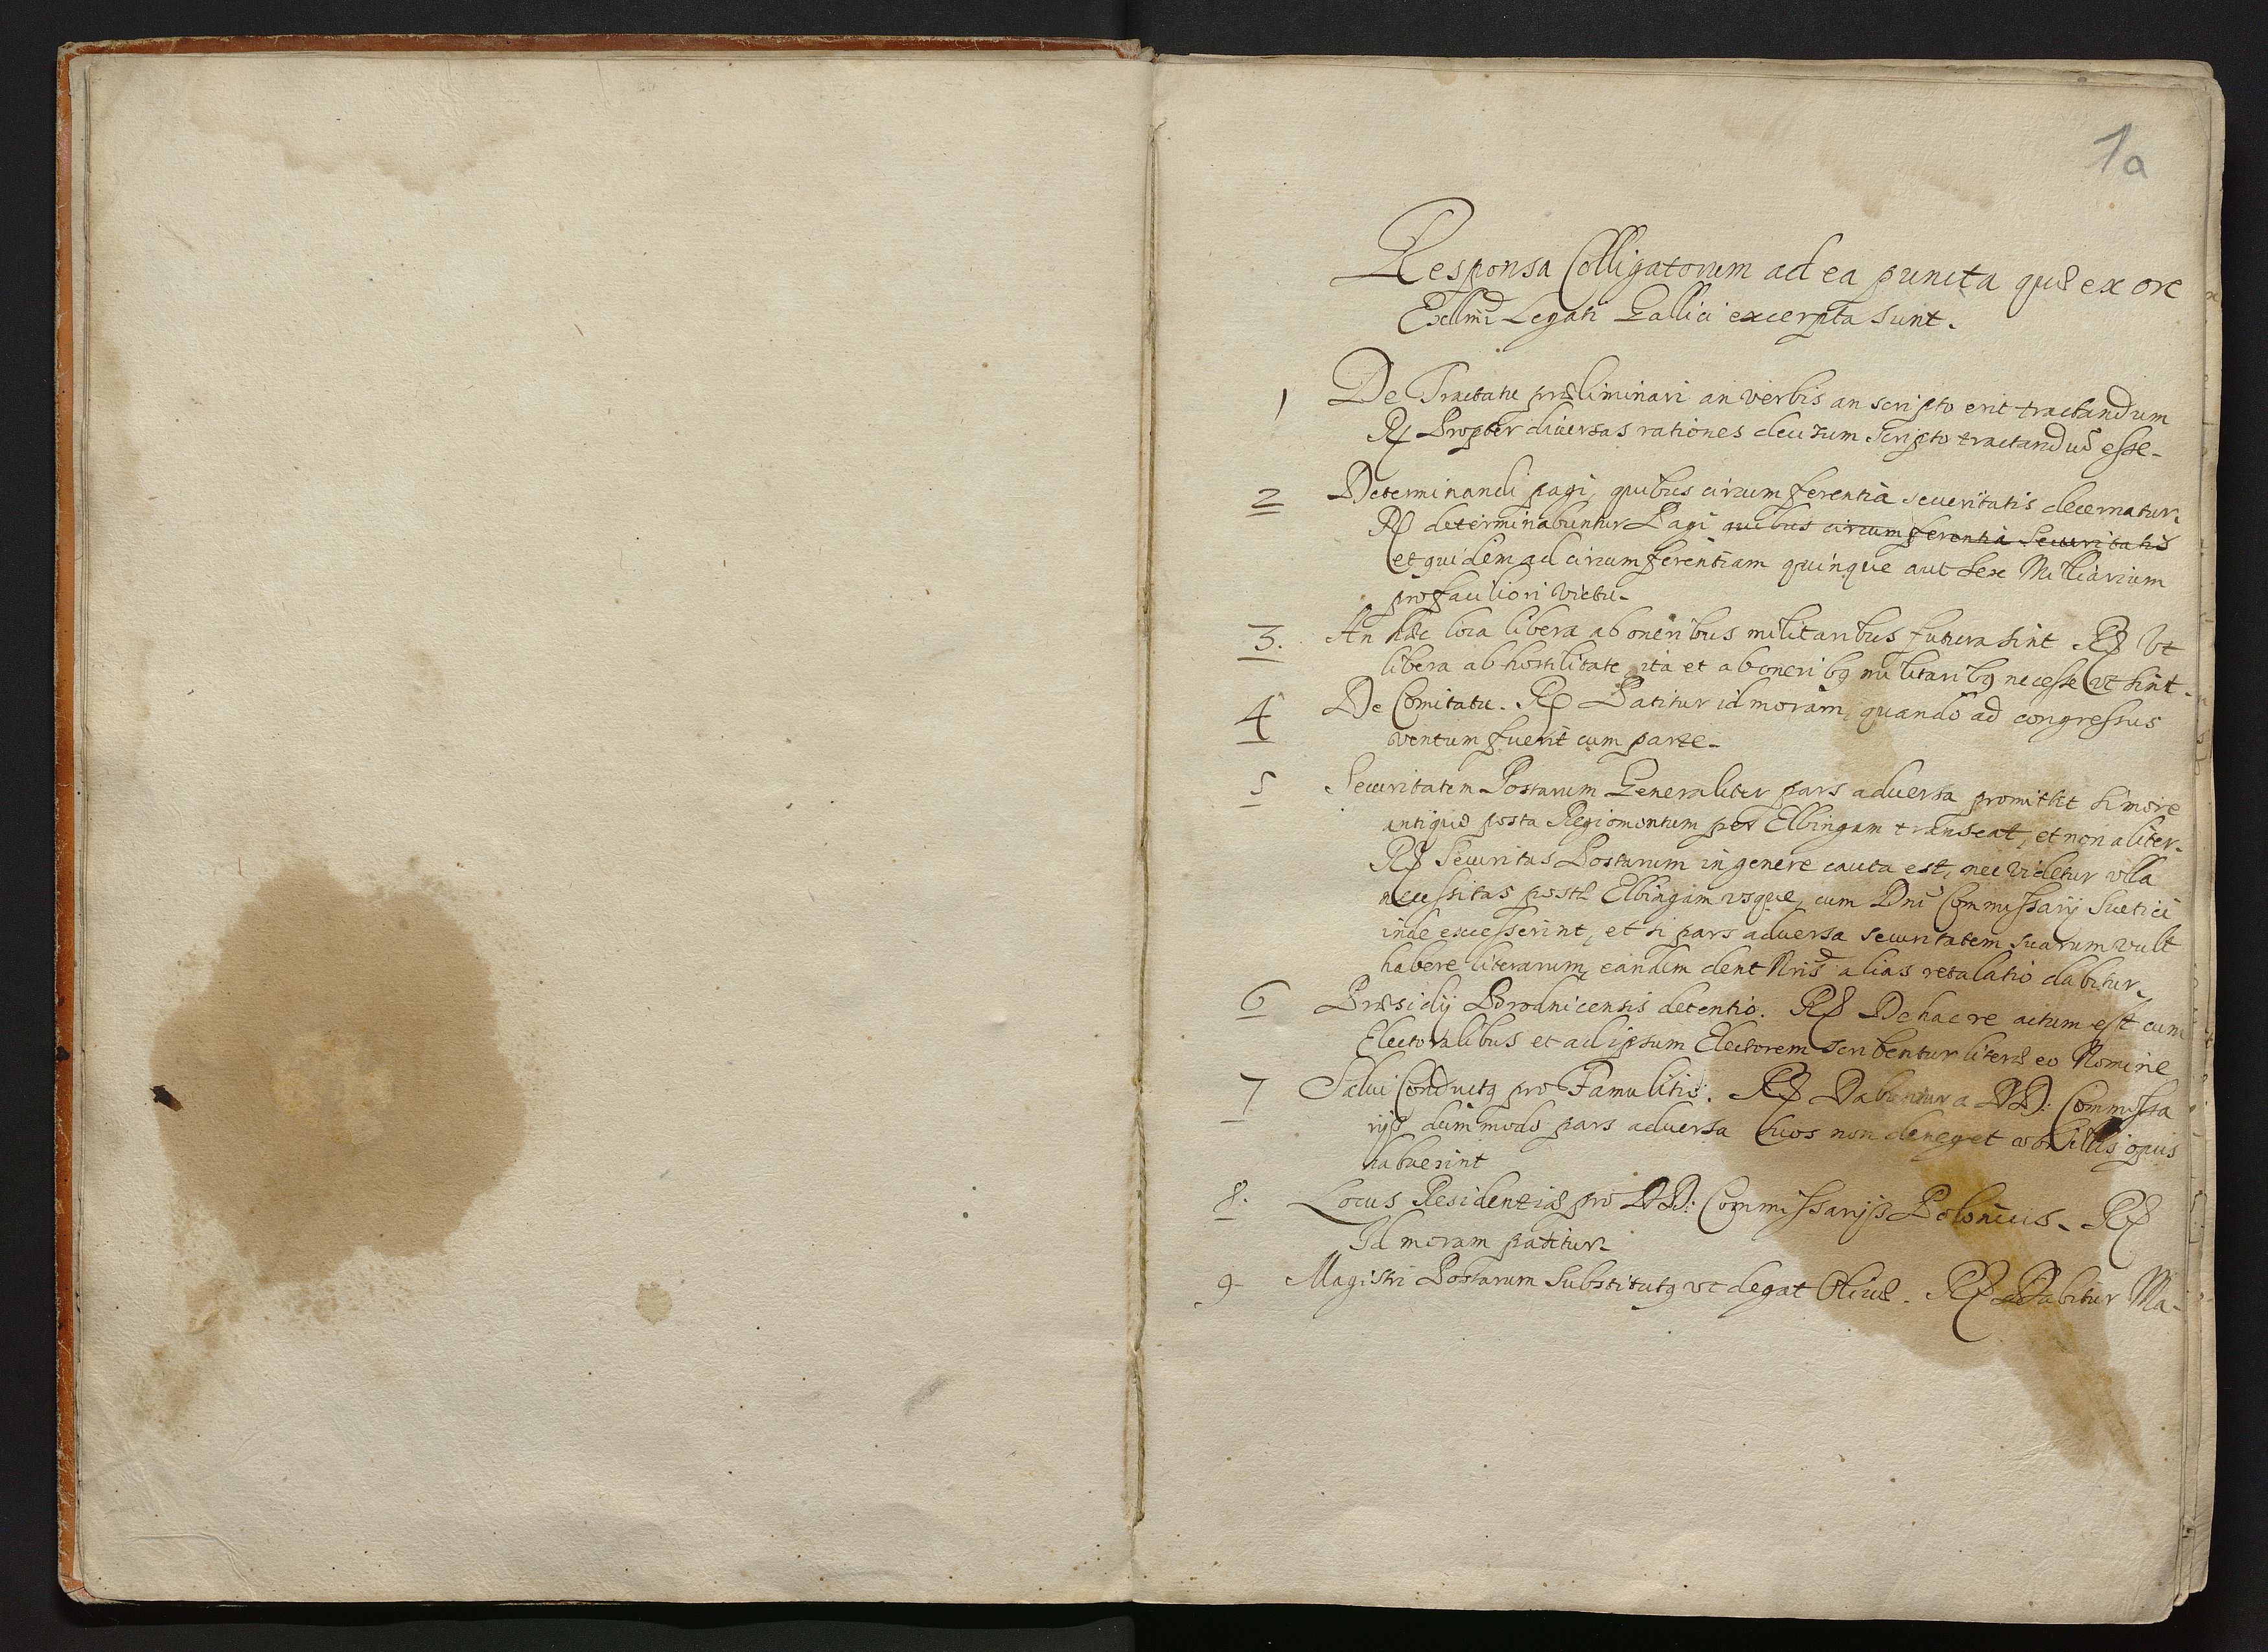 1a
Responsa Colligatorum ad ea puncta quæ ex ore
Exllmi Legati Gallici excerpta sunt.
1 De Tractatu præliminari an verbis an scripto erit tractandum
Rx Propter diversas rationes decisum scripto tractandũ esse.
2 Determinandi pagi, quibus circumferentia securitatis decernatur.
Rx determinabuntur Pagi quibus circumferentia Securitatis
et quidem ad circumferentiam quinque aut sex Milliarium
pro faciliori victu.
3. An hæc loca libera ab oneribus militaribus futura sint Rx Vt
libera ab hostilitate ita et ab oneribq militaribq necesse vt sint.
4 De Comitatu. Rx Patitur id moram, quando ad congressus
ventum fuerit cum parte.
5 Securitatem Postarum Generaliter pars adversa promittit si more
antiquo posta Regiomontum per Elbingam transeat, et non aliter.
Rx Securitas Postarum in genere cauta est, nec videtur vlla
necessitas postæ Elbingam vsque, cum Dni Commissarij Suetici
inde excesserint, et si pars adversa securitatem suarum vult
habere literarum, eandem dent Nris alias retalatio dabitur.
6 Præsidij Brodnicensis detentio. Rx De hac re actum est cum
Electoralibus et ad ipsum Electorem scribentur literæ eo Nomine
7 Salvi Conductq pro Famulitis. Rx Dabuntur a DD: Commissa
rijs dummodo pars adversa suos non deneget vbi illis opus
habuerint
8. Locus Residentiæ pro DD: Commissarijs Polonicis. Rx
Id moram patitur.
9 Magistri Postarum Substitutq vt degat Olivæ. Rx Dabitur Ma-